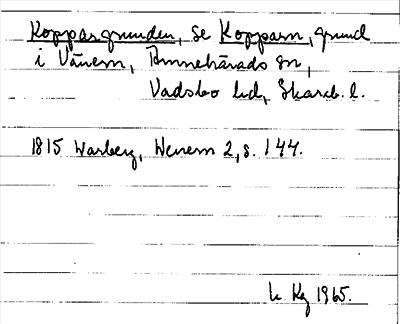 Koppargrunden, se Kopparn, grund
i Vänern, Amnehärads sn,
Vadsbo hd, Skarab. l.
1815 Warberg, Wenern 2, s. 144.
L. Kg 1965.